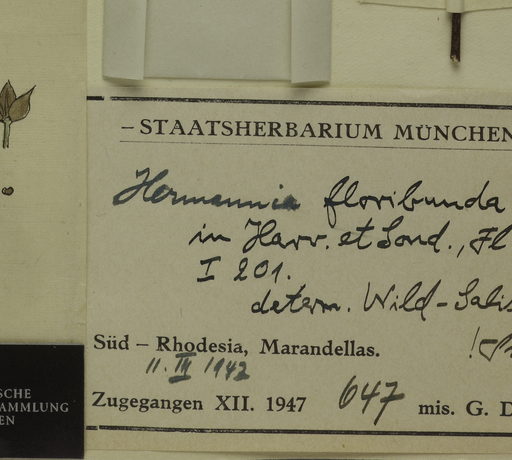 – STAATSHERBARIUM MÜNCHEN
Hermannia floribunda
in Harv. et Sond., Fl
I 201.
determ. Wild-Salis
Süd – Rhodesia, Marandellas.
11. III 1942
Zugegangen XII. 1947 647 mis. G. D
SCHE
AMMLUNG
EN